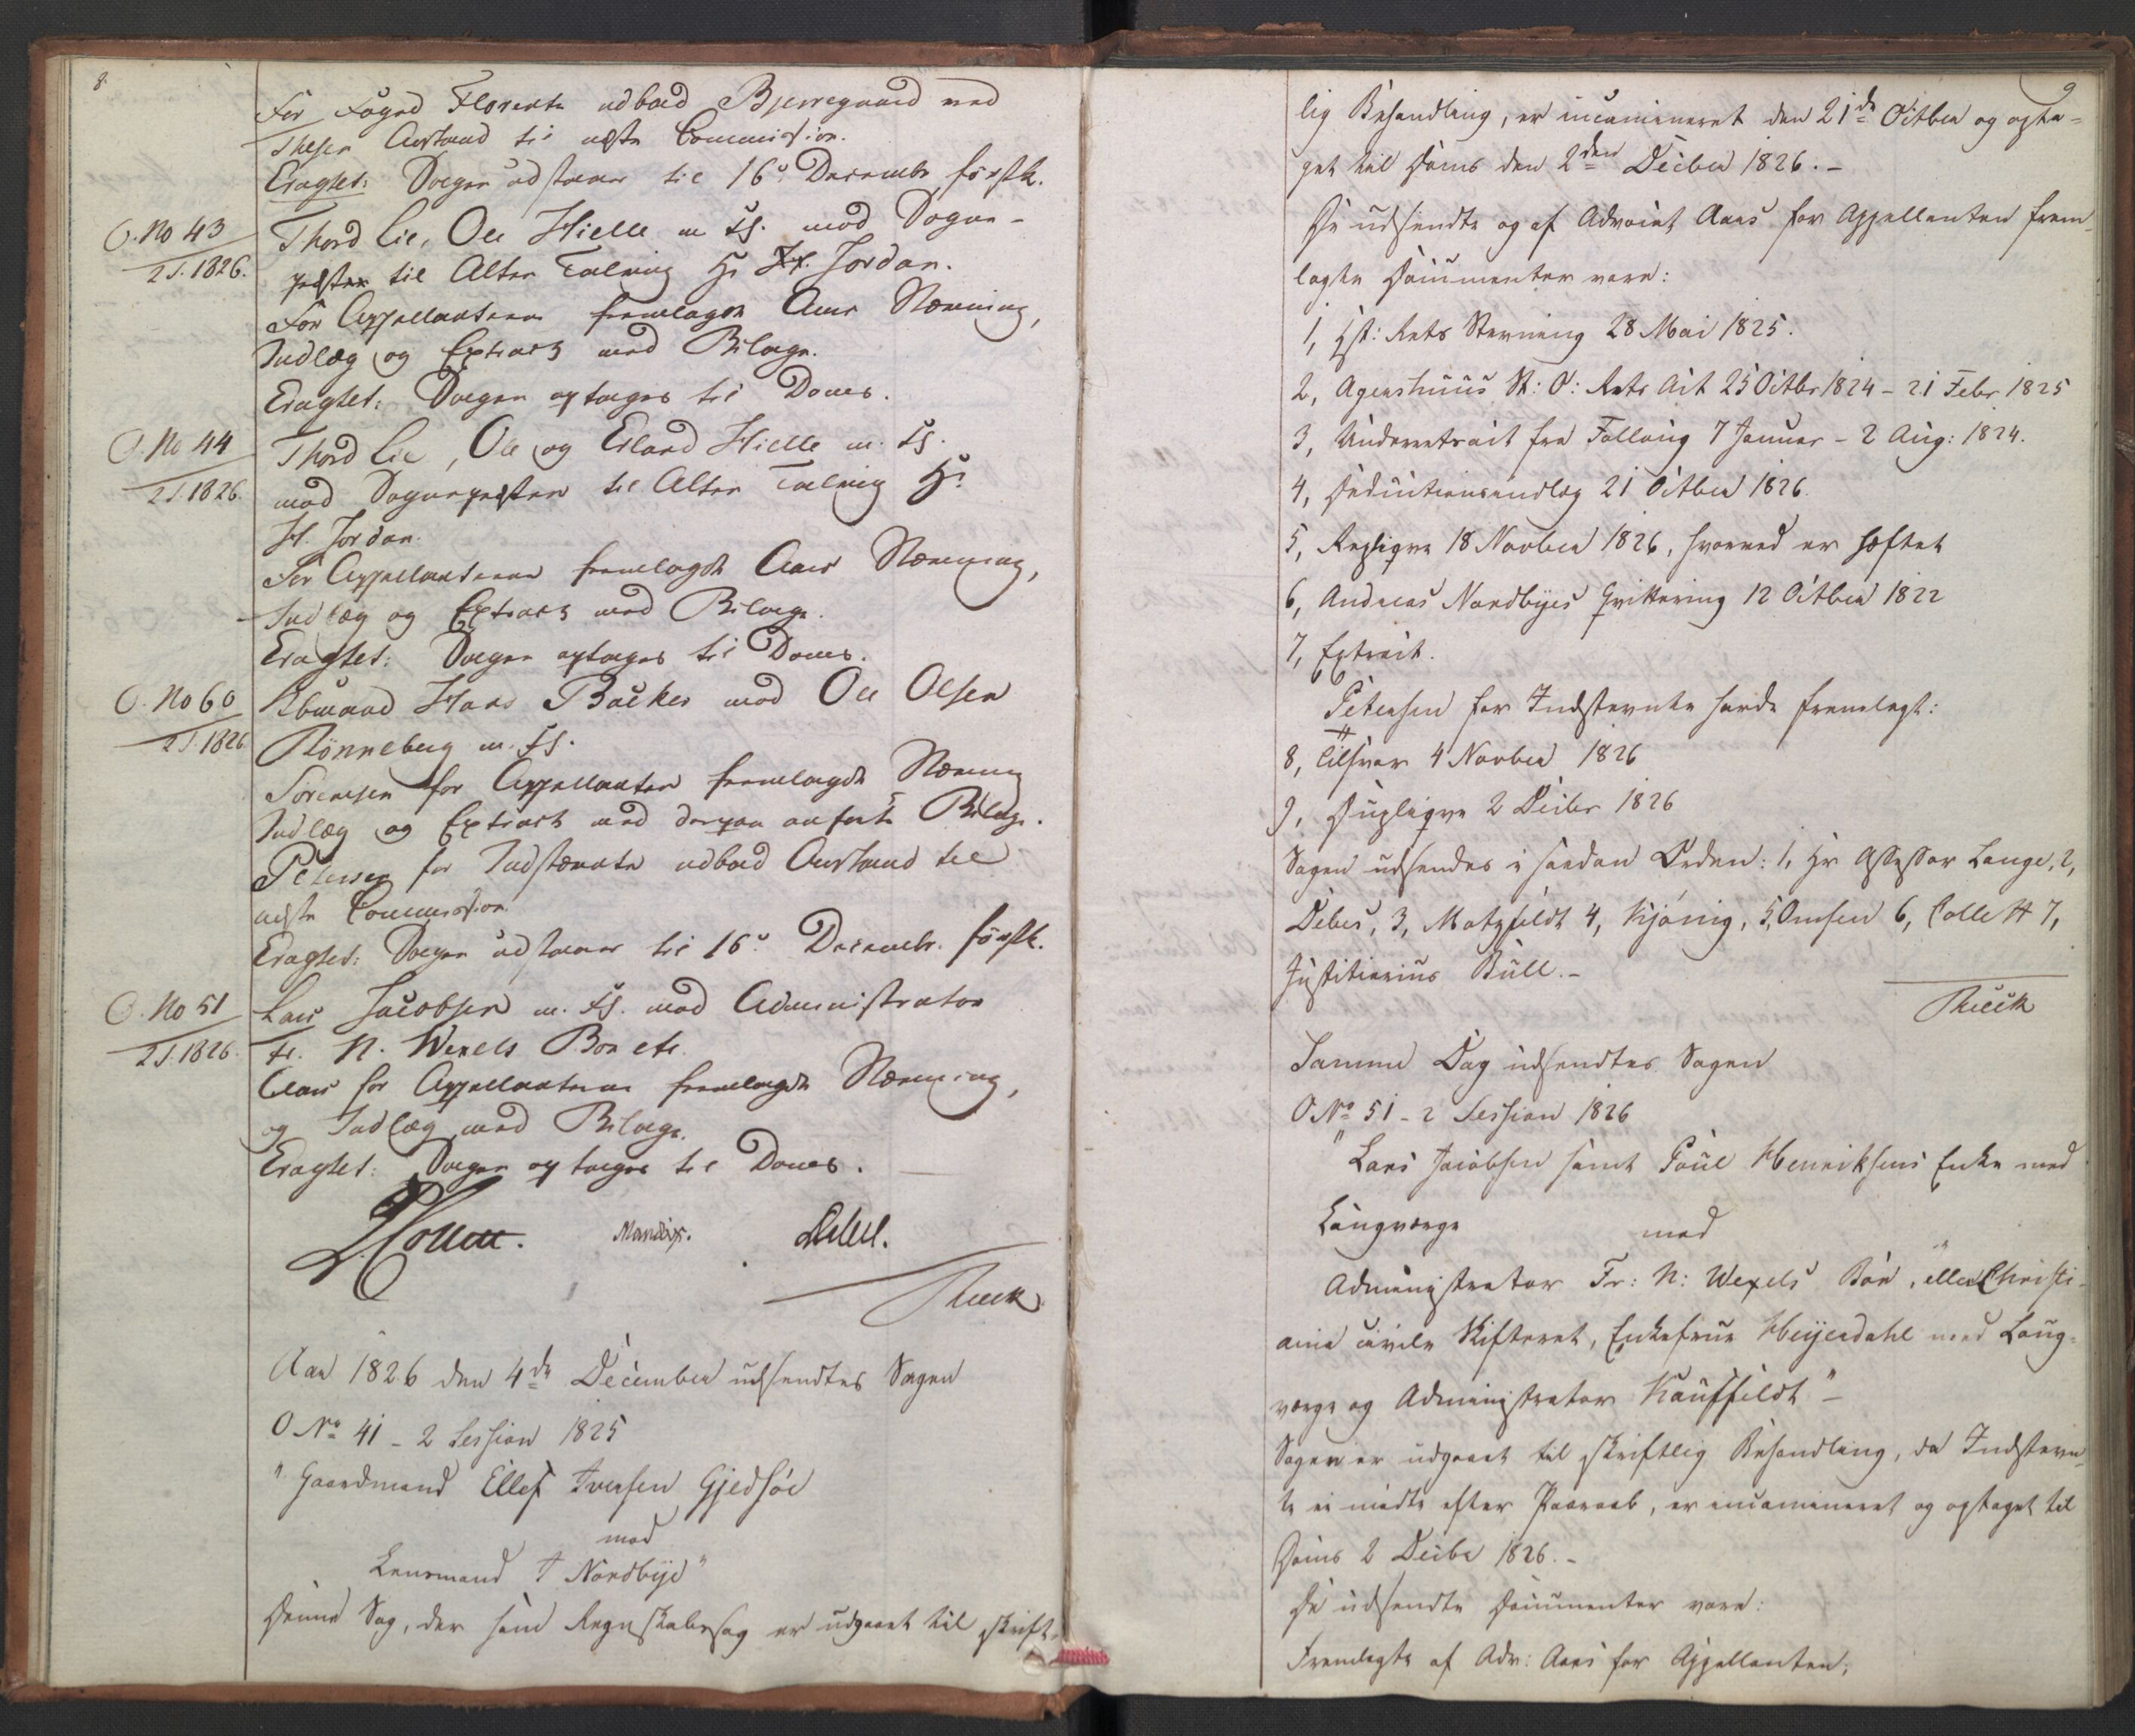 8.
For Foged Florents udbad Bjerregaard ved
Thesen Anstand til næste Commission.
Eragtet: Sagen udstaaer til 16de Decembr førstk.
O. No 43
2 S. 1826.
Thord Lie, Ole Hielle m fl. mod Sogne-
præsten til Alten Talvig Hr H. Jordan.
For Appellanterne fremlagde Aars Stævning,
Indlæg og Extract med Bilage.
Eragtet: Sagen optages til Doms.
O. No 44
2 S. 1826.
Thord Lie, Ole og Erland Hielle m. fl.
mod Sognepræsten til Alten Talvig Hr
H. Jordan.
For Appellanterne fremlagde Aars Stævning,
Indlæg og Extract med Bilage.
Eragtet: Sagen optages til Doms.
O. No 60
2 S. 1826
Kbmand Hans Backer mod Ole Olsen
Rönneberg m. fl.
Sørensen for Appellanten fremlagde Stævning
Indlæg og Extract med derpaa anførte Bilage.
Petersen for Indstævnte udbad Anstand til
næste Commission.
Eragtet: Sagen udstaaer til 16de Decembr. førstk.
O. No 51
2 S. 1826.
Lars Jacobsen m. fl. mod Administrator
Fr. N. Wexels Boe etc.
Aars for Appellanterne fremlagde Stævning,
og Indlæg med Bilage.
Eragtet: Sagen optages til Doms.
Collett. Mandix. Debes.
Rieck
Aar 1826 den 4de December udsendtes Sagen
O No 41 - 2 Session 1825
"Gaardmand Ellef Iversen Gjedsøe
mod
Lensmand T Nordbye"
Denne Sag, der som Regnskabssag er udgaaet til skrift-
9
lig Behandling, er incamineret den 21de Octber og opta-
get til Doms den 2den Decber 1826. -
De udsendte og af Advocat Aars for Appellanten frem-
lagte Documenter vare:
1, Hst: Rets Stevning 28 Mai 1825.
2, Agershuus St: O: Rets Act 25 Octbr 1824 - 21 Febr 1825
3, Underretsact fra Follaug 7 Januar - 2 Aug: 1824.
4, Deductionsindlæg 21 Octber 1826.
5, Repliqve 18 Novber 1826, hvorved er hæftet
6, Andreas Nordbyes Qvittering 12 Octber 1822
7, Extract.
Petersen for Indstevnte havde fremlagt:
8, Tilsvar 4 Novber 1826
9, Dupliqve 2 Decbr 1826
Sagen udsendes i saadan Orden: 1, Hr Assessor Lange, 2,
Debes, 3, Motzfeldt 4, Kjønig, 5, Omsen 6, Collett 7,
Justitiarius Bull. -
Rieck
Samme Dag udsendtes Sagen
O No 51 - 2 Session 1826
"Lars Jacobsen samt Poul Henriksens Enke med
Laugværge
mod
Administrator Fr: N: Wexels Boe, eller Christi-
ania civile Skifteret, Enkefrue Heyerdahl med Laug-
værge og Administrator Kauffeldt" -
Sagen er udgaaet til skriftlig Behandling, da Indstevn-
te ei mødte efter Paaraab, er incamineret og optaget til
Doms 2 Decbr 1826. -
De udsendte Documenter vare:
Fremlagte af Adv: Aars for Appellanten,